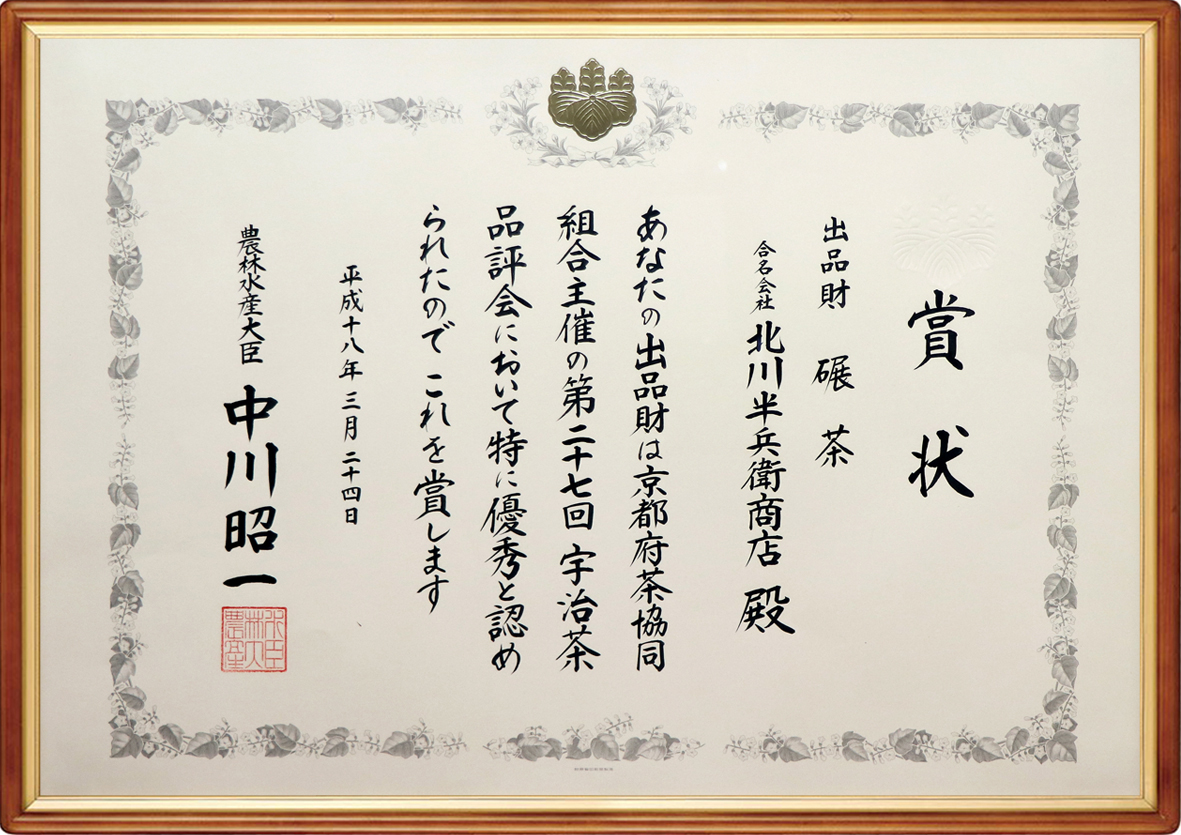 賞状
出品財 碾茶
合名会社 北川半兵衛商店 殿
あなたの出品財は京都府茶協同
組合主催の第二十七回宇治茶
品評会において特に優秀と認め
られたのでこれを賞します
平成十八年三月二十四日
農林水産大臣 中川昭一